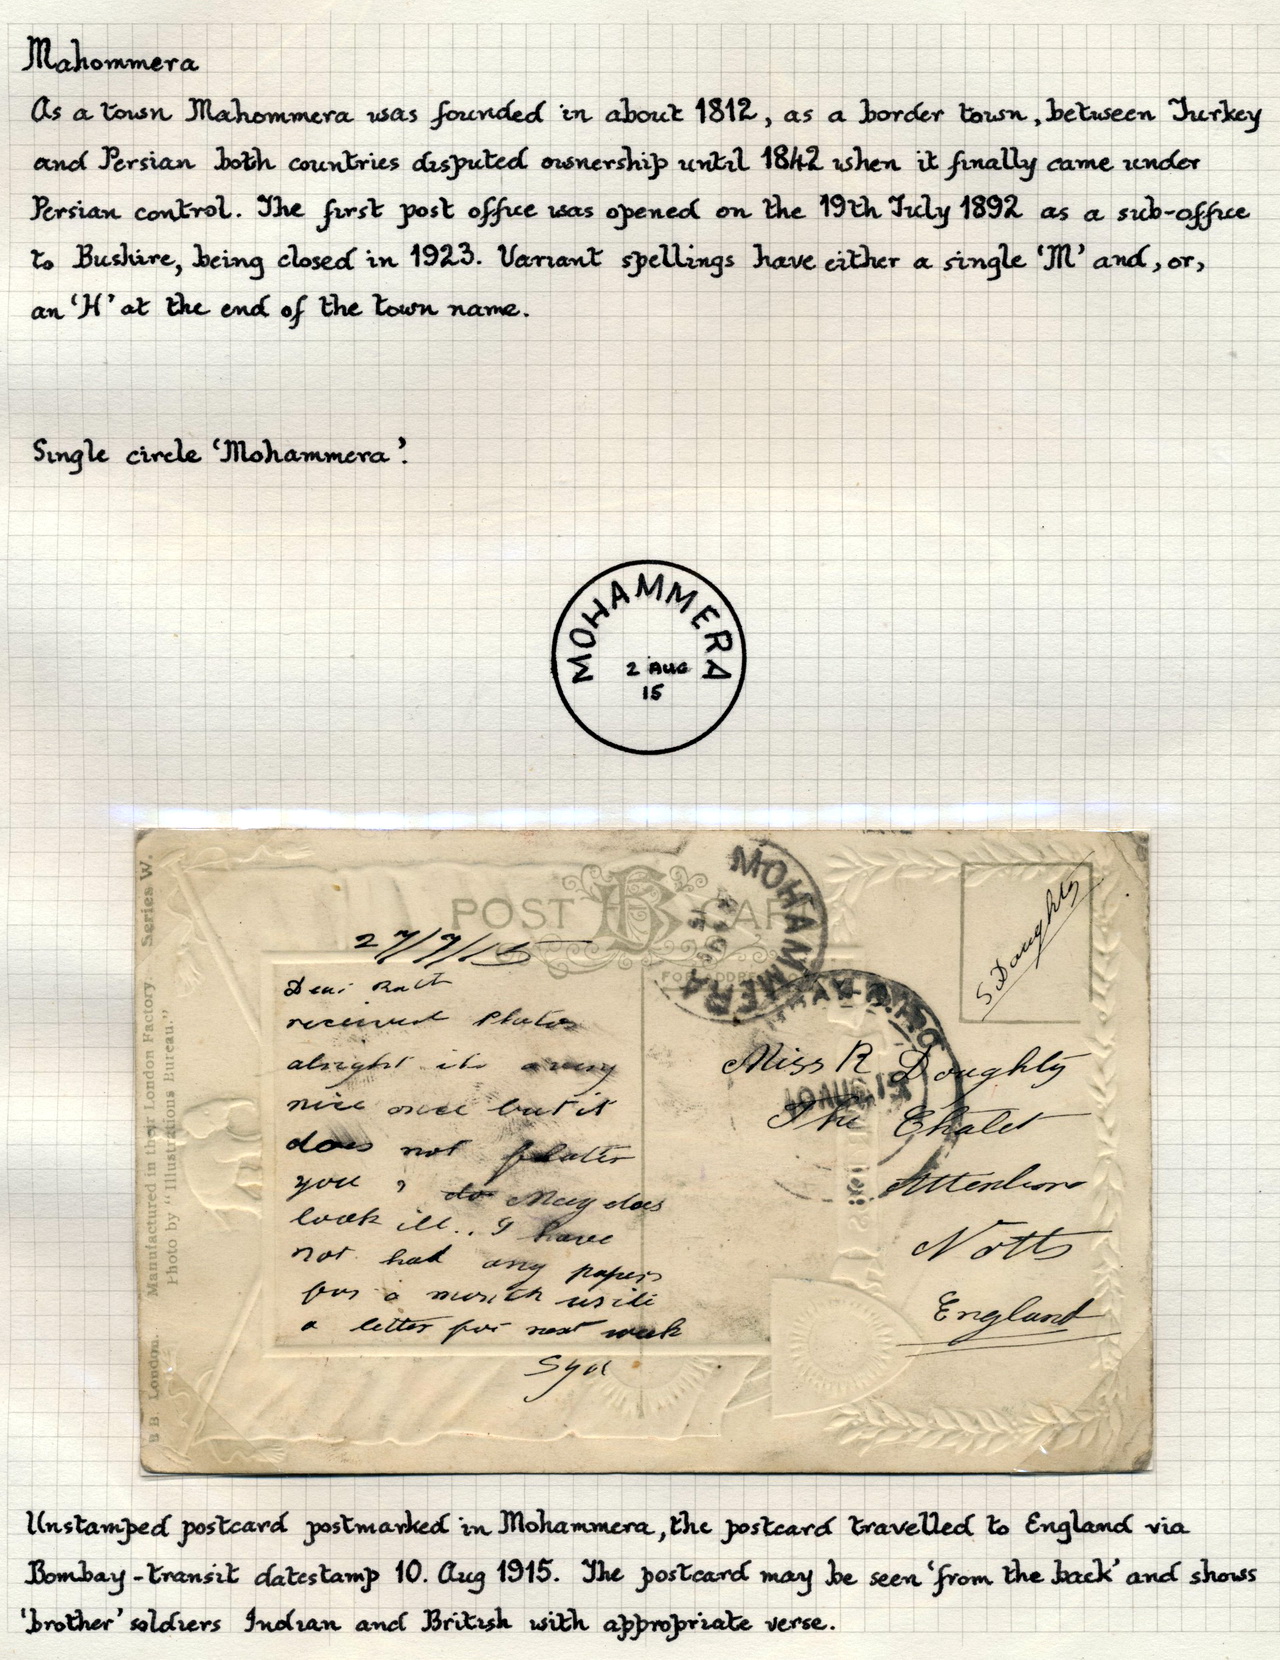 Mahommera
As a town Mahommera was founded in about 1812, as a border town, between Turkey
and Persian both countries disputed ownership until 1842 when it finally came under
Persian control. The first post office was opened on the 19th July 1892 as a sub-office
to Bushire, being closed in 1923. Variant spellings have either a single 'M' and, or,
an 'H' at the end of the town name.
Single circle 'Mohammera'.
MOHAMMERA
2 AUG
15
POST CARD
MOHAMMERA
AUG
15
S Doughty
27/7/15
Dear
received Photos
alright its a very
nice once but it
does not flater
you , do May does
look ill.. I have
not had any papers
for a month
a letter for next week
Syd
Miss R Doughty
The Chalet
Attenboro
Notts
England
10AU
B B London. Manufactured in their London Factory. Series W.
Photo by "Illustrations Bureau."
Unstamped postcard postmarked in Mohammera, the postcard travelled to England via
Bombay - transit datestamp 10. Aug 1915. The postcard may be seen 'from the back' and shows
'brother' soldiers Indian and British with appropriate verse.